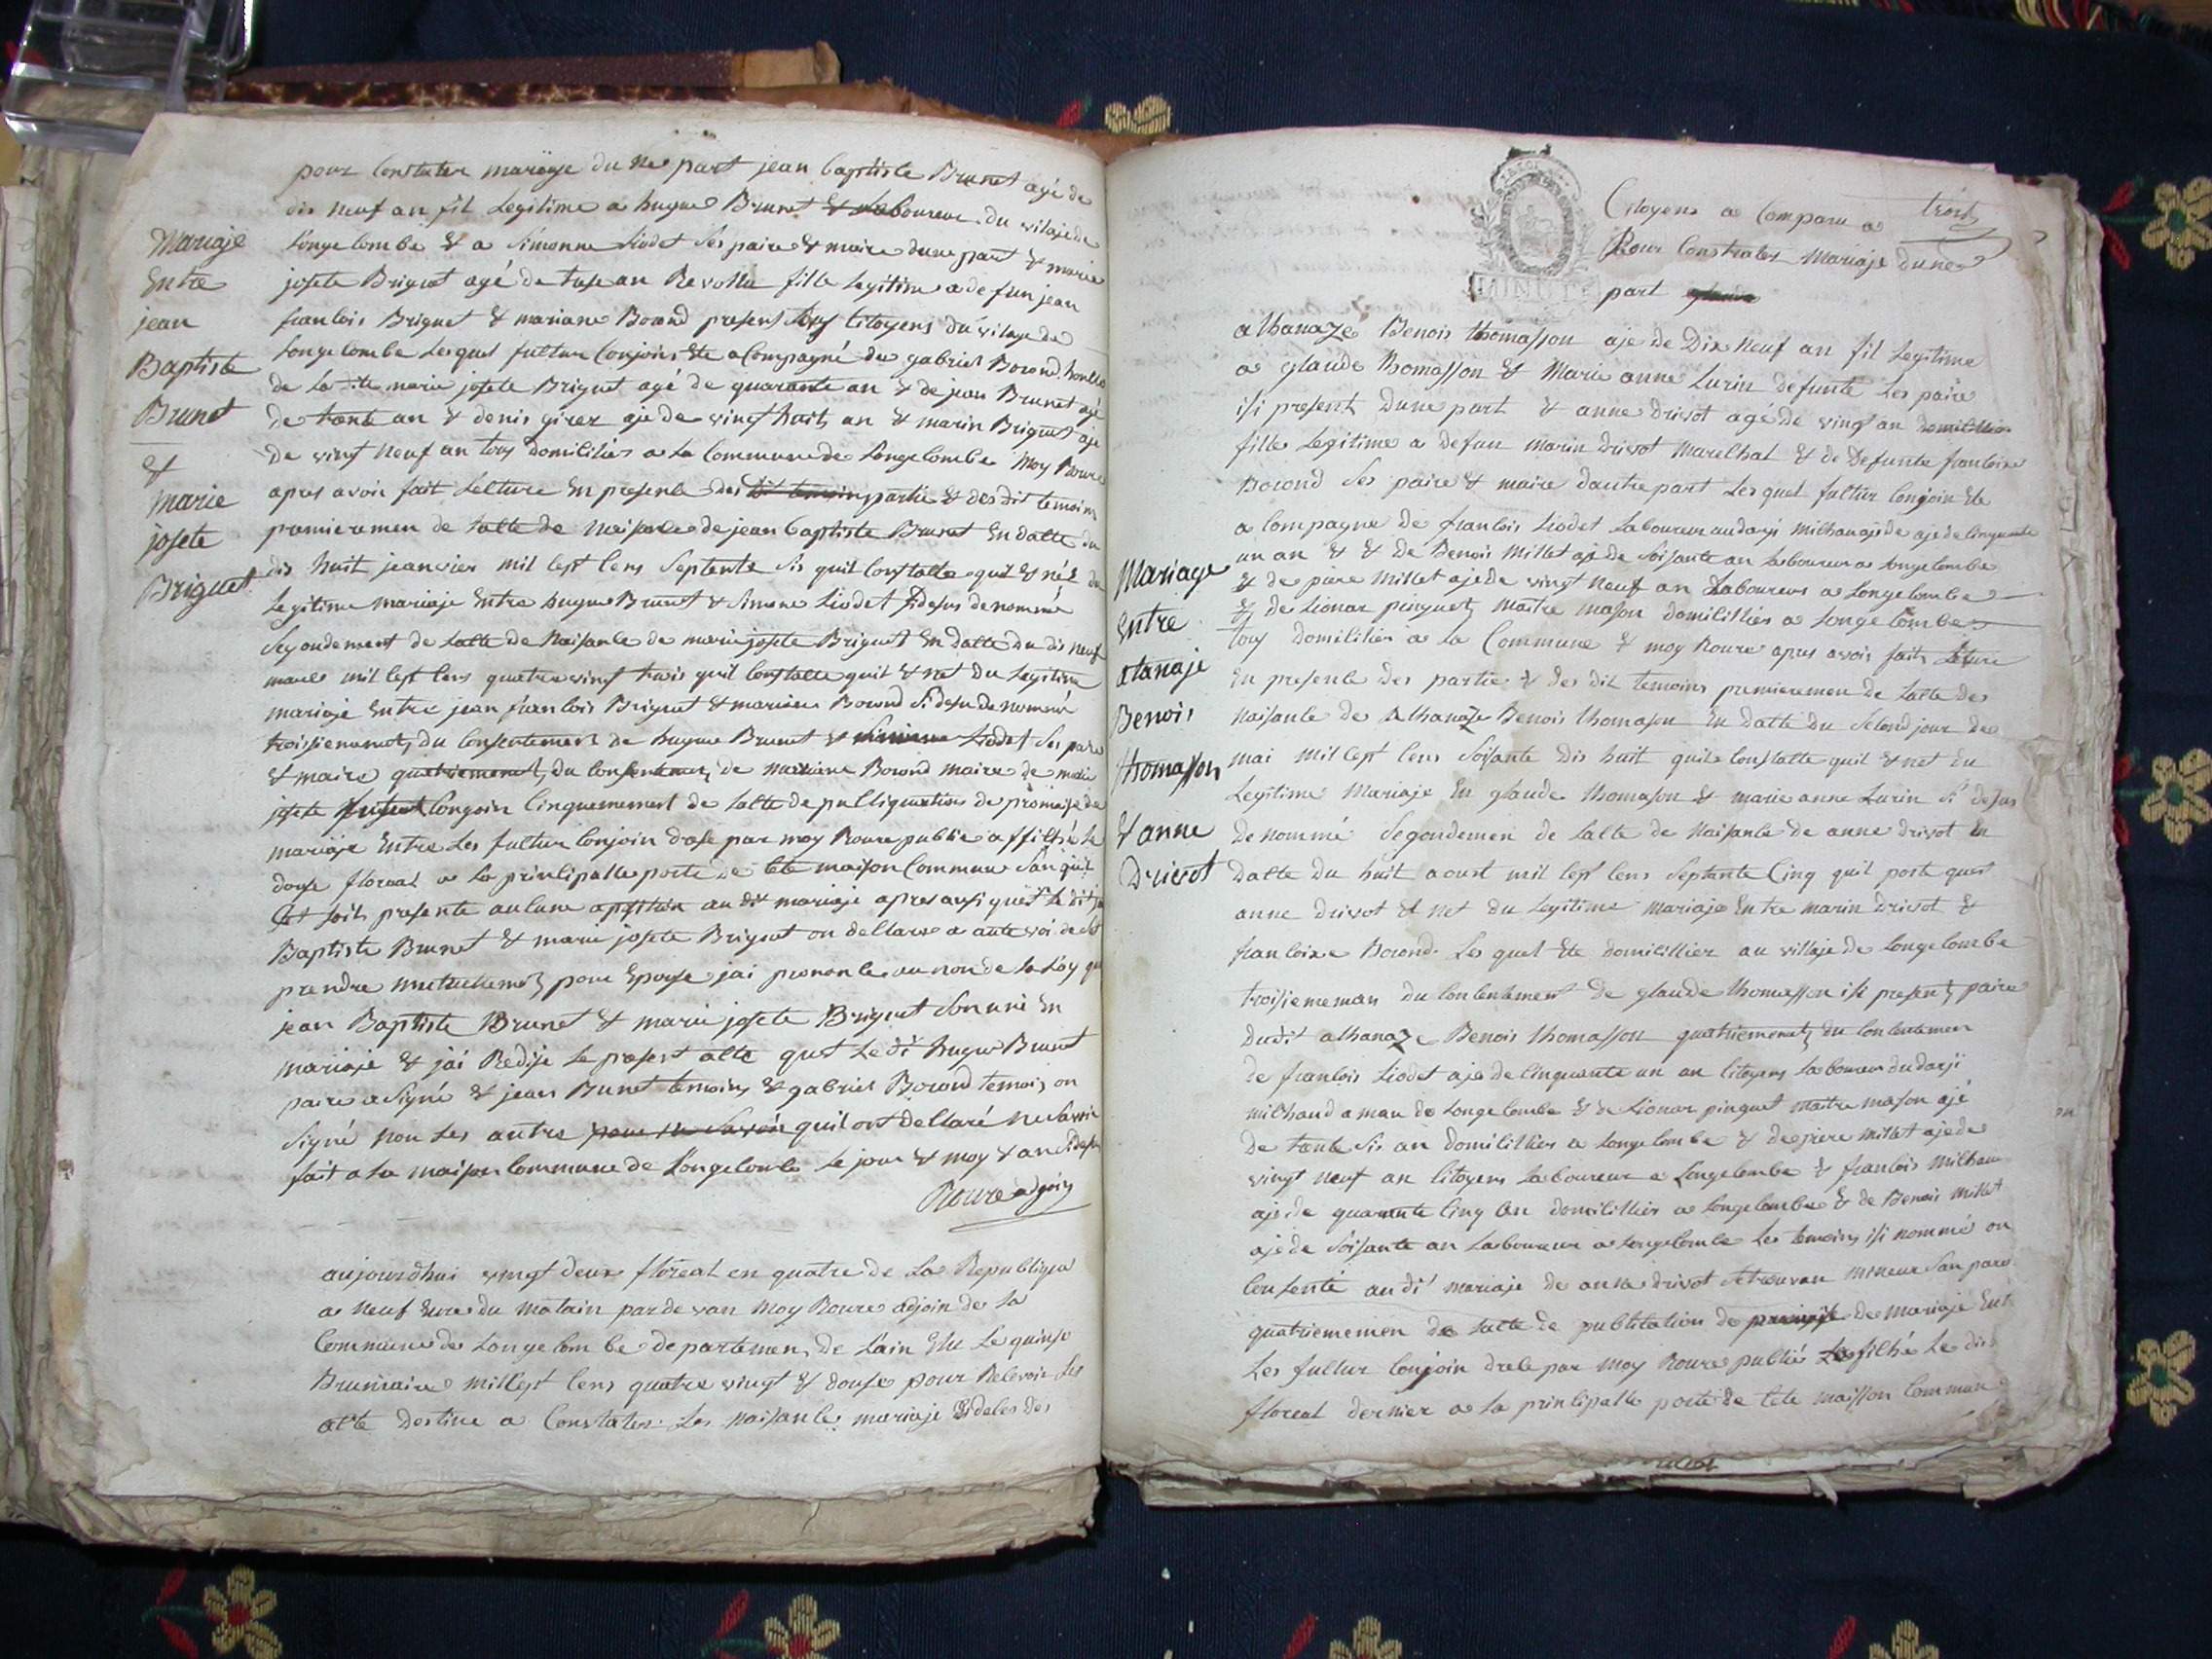 pour Constater mariage du ne part jean baptiste Brunet agé de
dis neuf an fil Legitime a hugue Brunet & Laboureur du vilaje de
Longelombe & a Simonne Liodet Ses paire & maire dune part & marie
josete Briguet agé de trese an Revollu fille Legitime a defun jean
franlois Briguet & mariane Borond present tous Citoyens du vilage de
Longelombe Lesquel fultur Conjoins Ete acompagné de gabriel Borond
de la dite marie josete Briguet agé de quarante an & de jean Brunet agé
de trente an & denis girer aje de vingt huit an & marin Briguet aje
de vingt neuf an tous domililiés a la Commune de Longelombe Moy Roure
apres avoir fait Lelture En presenle des dit temoin partie & des dit temoins
premieremen de lalte de Naisanle de jean baptiste Brunet En datte du
dis huit jeanvier mil sept lens Septente Sis quil Constatte quil & né de
Legitime mariaje Entre hugue Brunet & Simone Liodet Sidesus denommé
Segondement de Lalte de Naisanle de marie josete Briguet En datte du dis neuf
mars mil sept lens quatre vingt trois quil Constatte quil & net du Legitime
mariaje Entre jean franlois Briguet & mariane Borond Sidesu denommé
troisiemement du Consentement de hugue Brunet & Simonne Liodet Ses paire
& maire quatriement du Consentement de mariane Borond maire de marie
josete Conjoin Cinquemement de lalte de pulliquation de promaise de
mariaje Entre Les fultur Conjoin drese par moy Roure publie affiché Le
douse floreal a la prinlipalle porte de lete maison Commune San quil
Se Soit presente aulune au dit mariaje apres ausi quet Le dit jean
Baptiste Brunet & marie josete Briguet on dellare a aute voi de Se
prendre mutuellement pour Epouse jai prononle au non de la Loy que
jean Baptiste Brunet & marie josete Briguet Son uni En
mariaje & jai Redije Le present alte quet Ledi hugue Brunet
paire a Signé & jean Brunet temoins & gabriel Borond temoin on
Signé non Les autre pour ne Savoir quil ont dellaré ne Savoir
fait a la maison Commune de Longelombe Le jour & moy & an Sidesu
Roure adjoin
Mariaje
Entre
jean
Baptiste
Brunet
&
marie
josete
Briguet
aujourdhui vingt deux floreal en quatre de la Republique
a neuf Eure du matain pardevan moy Roure adjoin de la
Commune de Longelombe departemen de Lain Elu Le quinse
Brumaire mil sept lens quatre vingt & douse pour Relevoir Les
alte destine a Constater Les naisanle mariaje & deles des
trois
Citoyens a Comparu a
Pour Constrater Mariaje dune
part
MINUTE
athanaze Benois thomasson aje de Dix Neuf an fil Legitime
a glaude thomasson & Marie anne Lurin defunte Les paire
isi present dune part & anne drivot agé de vingt an
fille Legitime a defun marin drivot Marelhal & de Defunte franloise
Borond Ses paire & maire dautre part Lesquel fultur Conjoin Ete
a Compagne de franlois Liodet Laboureur aje de Cinquante
un an & & de Benois Millet aje de Soisante an Laboureur a Longelombe
& de piere Millet aje de vingt Neuf an Laboureur a Longelombe
& de Lionar pinguet Maitre mason domililliés a Longelombe
tous domililiés a La Commune & moy Roure apres avoir fait Leture
En presenle des partie & des dit temoins premieremen de lalte des
Naisanle de Athanaze Benois thomason En datte du Selond jour de
mai mil sept lens Soisante dis huit quil Constatte quil & net du
Legitime Mariaje En glaude thomason & marie anne Lurin Si desus
denommé Segondemen de Lalte de Naisanle de anne drivot En
datte du huit aoust mil sept lens Septante Cinq quil porte quet
anne drivot & net du Legitime mariaje Entre marin drivot &
franloise Borond Lesquel Ete domilillier au villaje de Longelombe
troisiememan du Consentement de glaude thomasson isi present paire
dudit athanaze Benois thomasson quatriement du Consentemen
de franlois Liodet aje de Cinquante un an Citoyens Laboureur
milhaud aman de Longelombe & de Lionar pinguet Maitre mason ajé
de trente Sis an domililliés a Longelombe & de piere Millet aje de
vingt neuf an Citoyens Laboureur a Longelombe & franlois Milhau
aje de quarante Cinq an domililliés a Longelombe & de Benois Millet
aje de Soisante an Laboureur a Longelombe Les temoins isi nommé on
Consenté au di mariaje de anne drivot Setrouvan mineur San pare
quatriememen de lalte de publitation de promaise de Mariaje Ent
Les fultur Conjoin drele par moy Roure publié Le dis
floreal dernier a la prinlipalle porte de lete maisson Commune
Mariage
Entre
atanaje
Benois
thomasson
& anne
Drievot